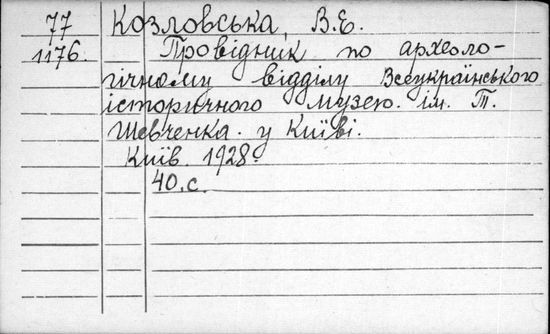 77 Козловська, В.Е.
1176. Провідник по археоло-
гічному відділу Всеукраїнського
історичного музею. ім. Т.
Шевченка. у Київі.
Київ. 1928.
40.с.